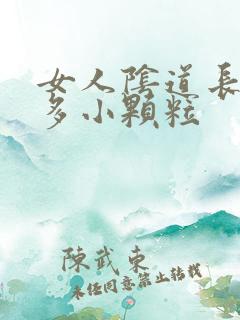 女人陰道長
多小顆粒
陳武東
未經同意禁止轉載